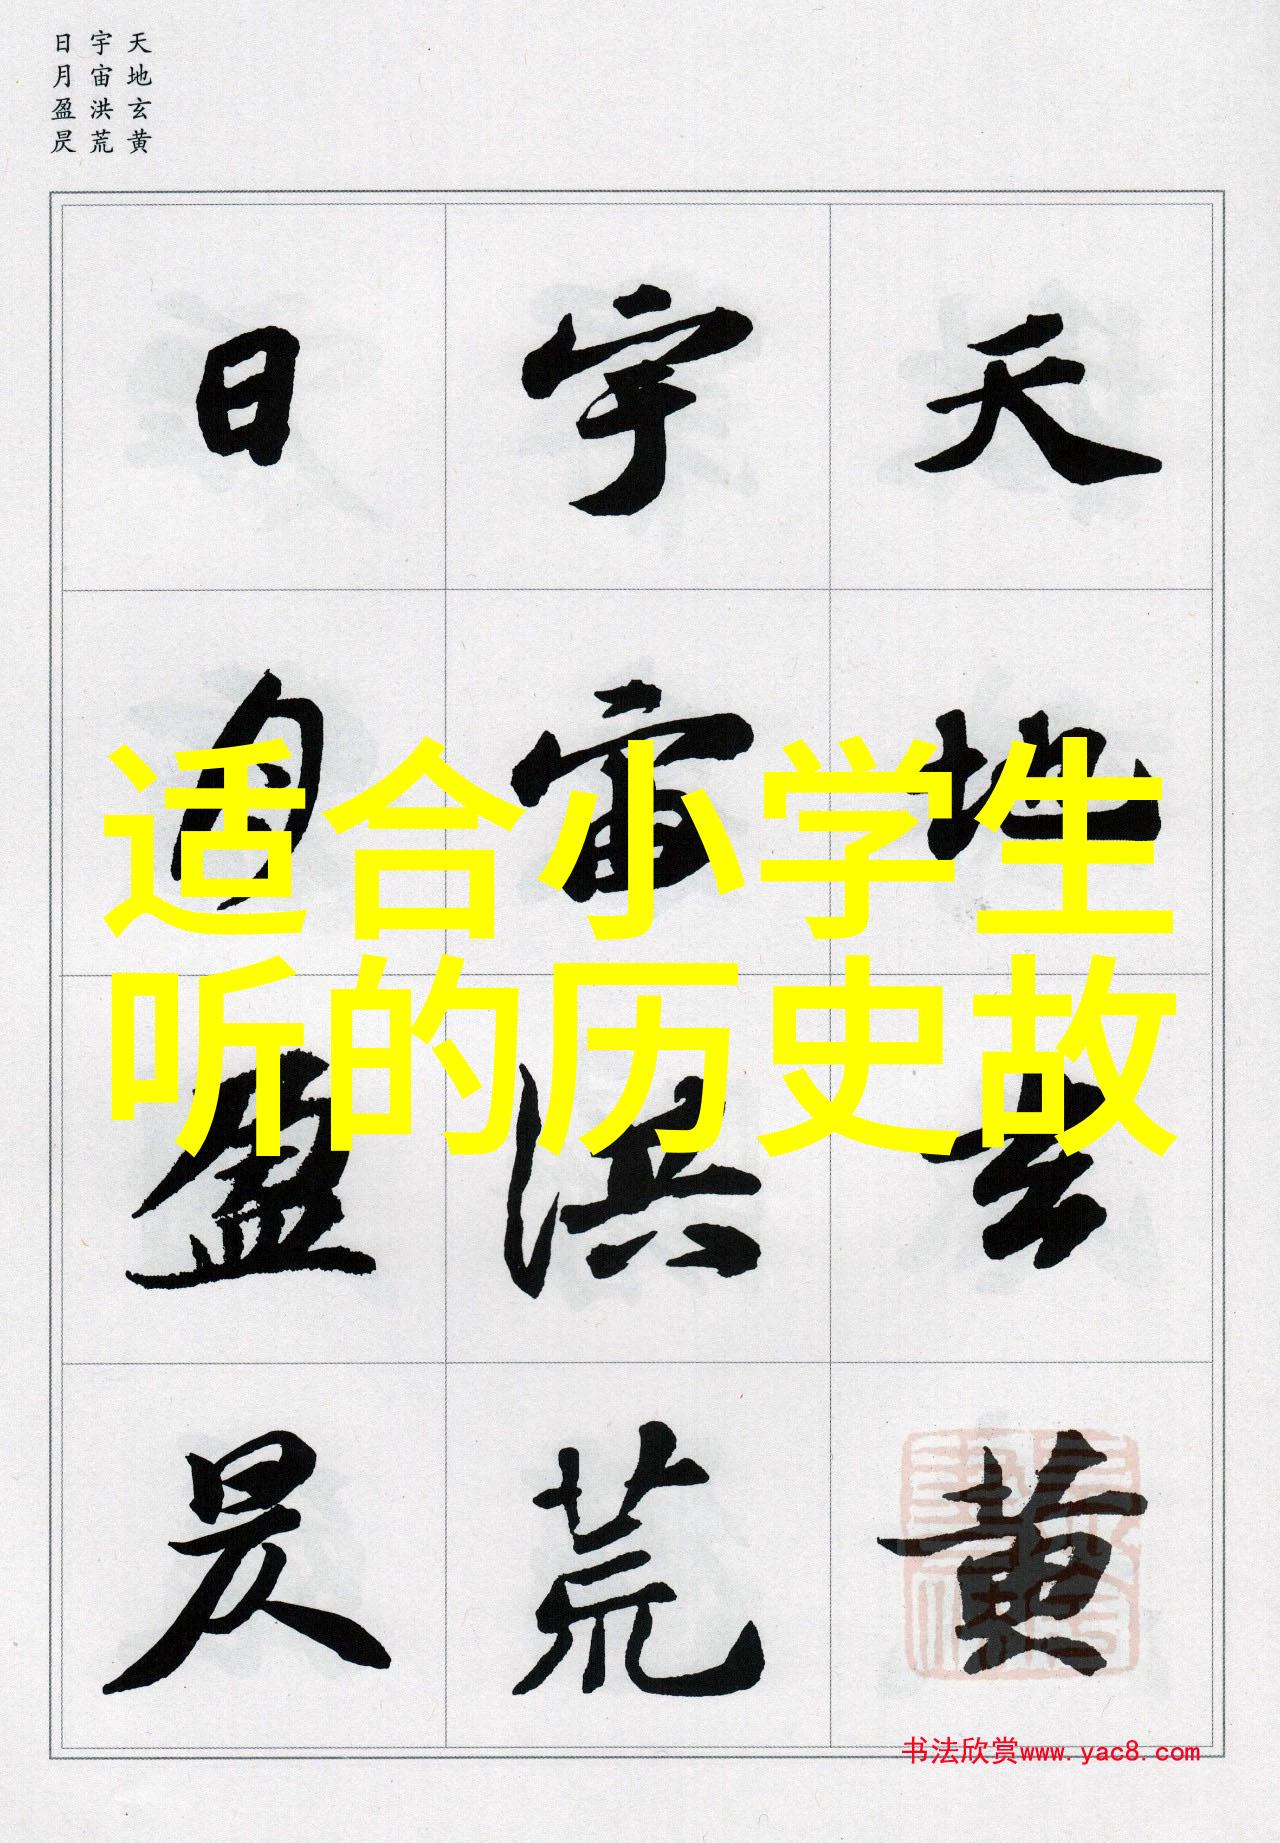 天地玄黄
宇宙洪荒
日月盈昃
天地玄黄
宇宙洪荒
日月盈昃
适合小学生
听的历史故
书法欣赏www.yac8.com